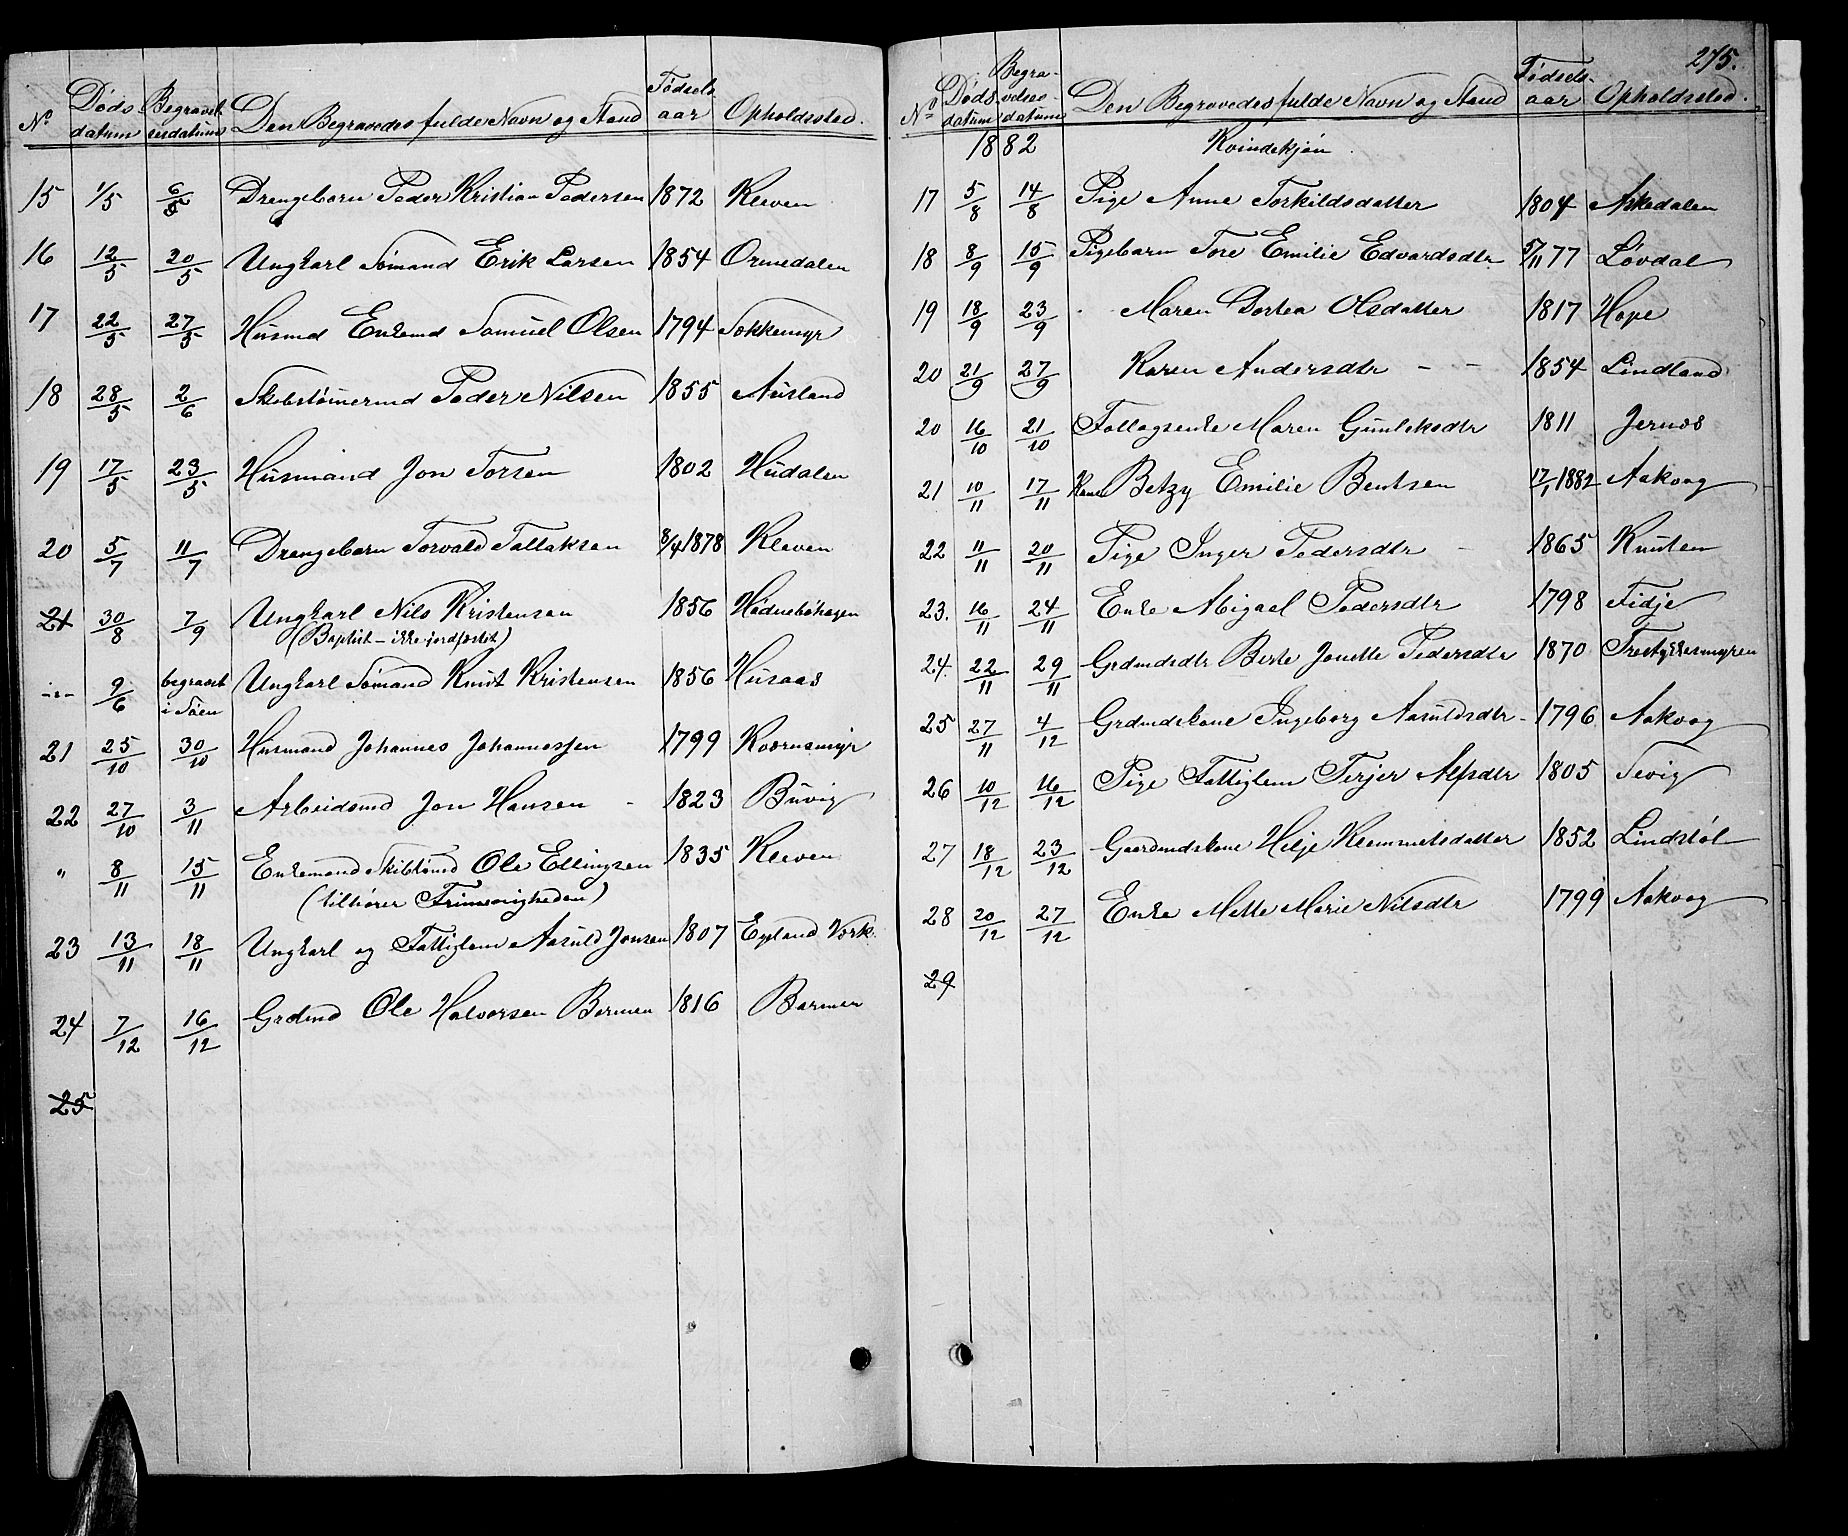 No Døds datum Begravelsesdatum Den Begravedes fulde Navn og Stand Fødselsaar Opholdssted.
15 1/5 6/5 Drengebarn Peder Kristian Pedersen 1872 Kleven
16 12/5 20/5 Ungkarl Sømand Erik Larsen 1854 Ormedalen
17 22/5 27/5 Husmd Enkemd Samuel Olsen 1794 Sokkemyr
18 28/5 2/6 Skibstømermd Peder Nilsen 1855 Ausland
19 17/5 23/5 Husmand Jon Torsen 1802 Hudalen
20 5/7 11/7 Drengebarn Torvald Tallaksen 8/4 1878 Kleven
21 30/8 7/9 Ungkarl Nils Kristensen 1856 Hødnebøhagen
(Baptist - ikke jordfæstet)
-"- 9/6 begravet i Søen Ungkarl Sømand Knut Kristensen 1856 Husaas
21 25/10 30/10 Husmand Johannes Johannessen 1799 Kvernemyr
22 27/10 3/11 Arbeidsmd Jon Hansen - 1823 Buvig
" 8/11 15/11 Enkemand Skibtømd Ole Ellingsen 1835 Kleven
(tilhører Frimenigheden)
23 13/11 18/11 Ungkarl og Fattiglem Aasuld Jonsen 1807 Egeland Værk.
24 7/12 16/12 Grdmd Ole Halvorsen Bermen 1816 Barmen
25
275.
No Døds datum Begravelsesdatum Den Begravedes fulde Navn og Stand Fødselsaar Opholdssted.
1882 Kvindekjøn
17 5/8 14/8 Pige Anne Torkildsdatter 1804 Askedalen
18 8/9 15/9 Pigebarn Tore Emilie Edvardsdtr 5/11 77 Løvdal
19 18/9 23/9 Maren Dortea Olsdatter 1817 Hope
20 21/9 27/9 Karen Andersdtr - - 1854 Lindland
20 16/10 21/10 Føllagsenke Maren Gunleksdtr 1811 Jernæs
21 10/11 17/11 Betzy Emilie Bentsen 17/1 1882 Aakvag
22 11/11 20/11 Pige Inger Pedersdtr - 1865 Knuten
23. 16/11 24/11 Enke Abigael Pedersdtr 1798 Fidje
24. 22/11 29/11 Grdmdsdtr Berte Jonette Pedersdtr 1870 Trestykkesmyren
25 27/11 4/12 Grdmdskone Ingeborg Aasuldsdtr - 1796 Aakvag
26 10/12 16/12 Pige Fattiglem Terjer Alfsdtr 1805 Sevig
27 18/12 23/12 Gaardmdskone Helje Klemmetsdatter 1852 Lindstøl
28 20/12 27/12 Enke Mette Marie Nilsdtr 1799 Aakvag
29